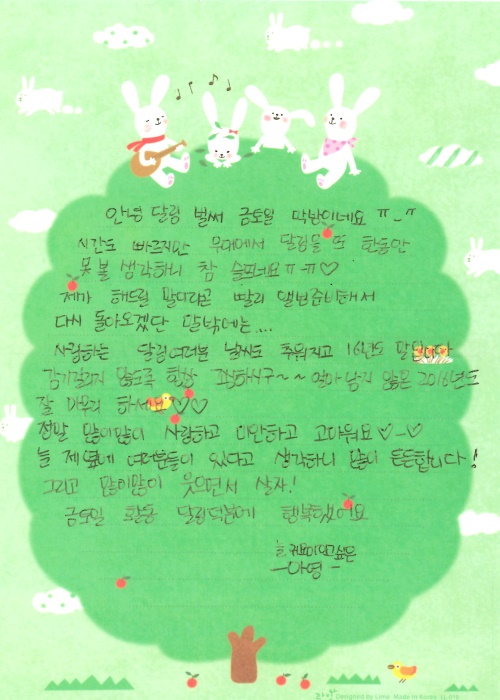 안녕 달링 벌써 금토일 막방이네요 ㅠ_ㅠ
시간도 빠르지만 무대에서 달링을 또 한동안
못 볼 생각하니 참 슬프네요 ㅠㅠ♡
제가 해드릴 말이라곤 빨리 앨범준비해서
다시 돌아오겠단 말밖에는...
사랑하는 달링여러분 날씨도 추워지고 16년도
감기걸리지 않도록 항상 조심하시구~~ 얼마 남지 않은 2016년도
잘 마무리 하세요 ♡♡
정말 많이많이 사랑하고 미안하고 고마워요 ♡-♡
늘 제 옆에 여러분들이 있다고 생각하니 많이 든든합니다!
그리고 많이많이 웃으면서 살자!
금토일 활동 달링덕분에 행복했어요
늘 싶은
-아영-
Designed by Lime Made in Korea LL-019